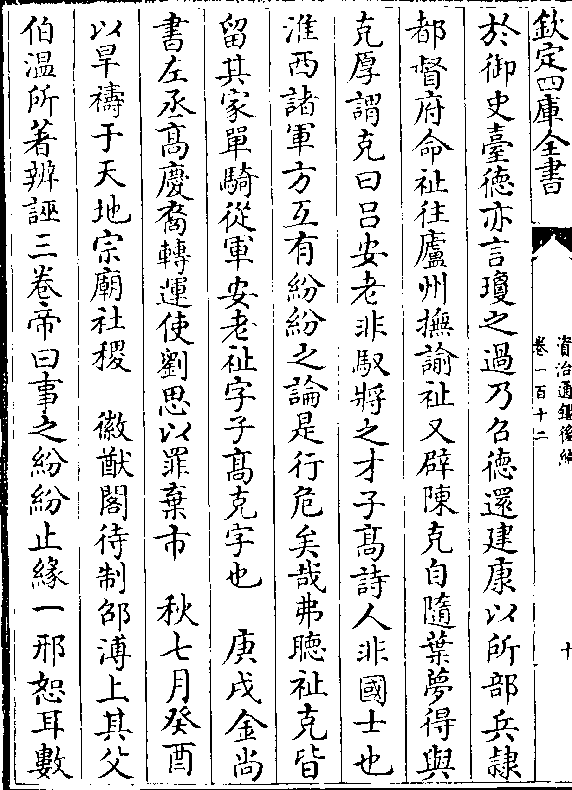 欽定四庫全書
資治通鑑後編
卷一百十二
十
於御史臺德亦言瓊之過乃召德還建康以所部兵隸
都督府命祉往廬州撫諭祉又辟陳克自隨葉夢得與
克厚謂克曰呂安老非馭將之才子髙詩人非國士也
淮西諸軍方互有紛紛之論是行危矣哉弗聽祉克皆
留其家單騎從軍安老祉字子髙克字也　庚戌金尚
書左丞髙慶裔轉運使劉思以罪棄市　秋七月癸酉
以旱禱于天地宗廟社稷　徽猷閣待制邵溥上其父
伯溫所著辨誣三卷帝曰事之紛紛止緣一邢恕耳數